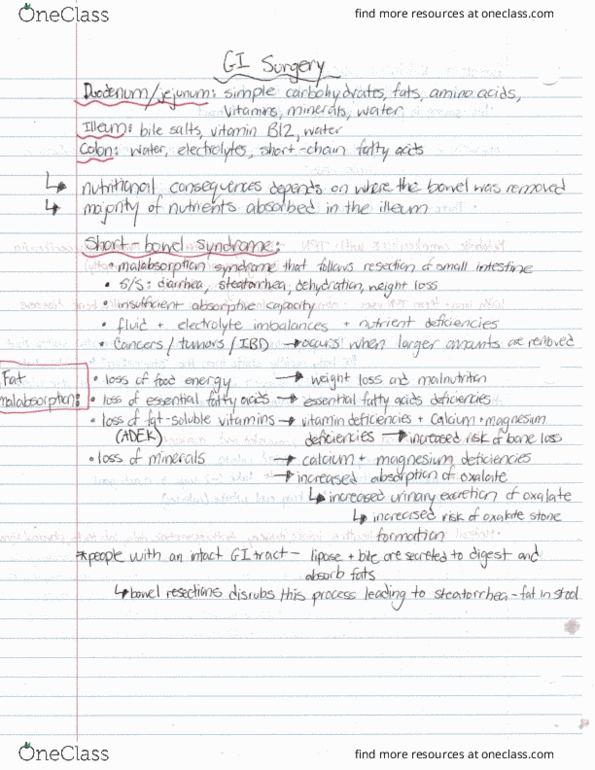 OneClass
find more resources at oneclass.com
GI Surgery
Duodenum/jejunum: simple carbohydrates, fats, amino acids,
vitamins, minerals, water
Illeum: bile salts, vitamin B12, water
Colon: water, electrolytes, short-chain fatty acids
↳ nutritional consequences depends on where the bowel was removed
↳ majority of nutrients absorbed in the illeum
Short-bowel syndrome:
• malabsorption syndrome that follows resection of small intestine
• S/S: diarrhea, steatorrhea, dehydration, weight loss
• insufficient absorptive capacity
• fluid + electrolyte imbalances + nutrient deficiencies
• Cancers/tumors/IBD → occurs when larger amounts are removed
Fat
malabsorption:
• loss of food energy → weight loss and malnutrition
• loss of essential fatty acids → essential fatty acids deficiencies
• loss of fat-soluble vitamins → vitamin deficiencies + calcium + magnesium
(ADEK) deficiencies → increased risk of bone loss
• loss of minerals → calcium + magnesium deficiencies
→ increased absorption of oxalate
↳ increased urinary excretion of oxalate
↳ increased risk of oxalate stone
formation
*people with an intact GI tract - lipase + bile are secreted to digest and
absorb fats
↳ bowel resections disrubs this process leading to steatorrhea - fat in stool
OneClass
find more resources at oneclass.com